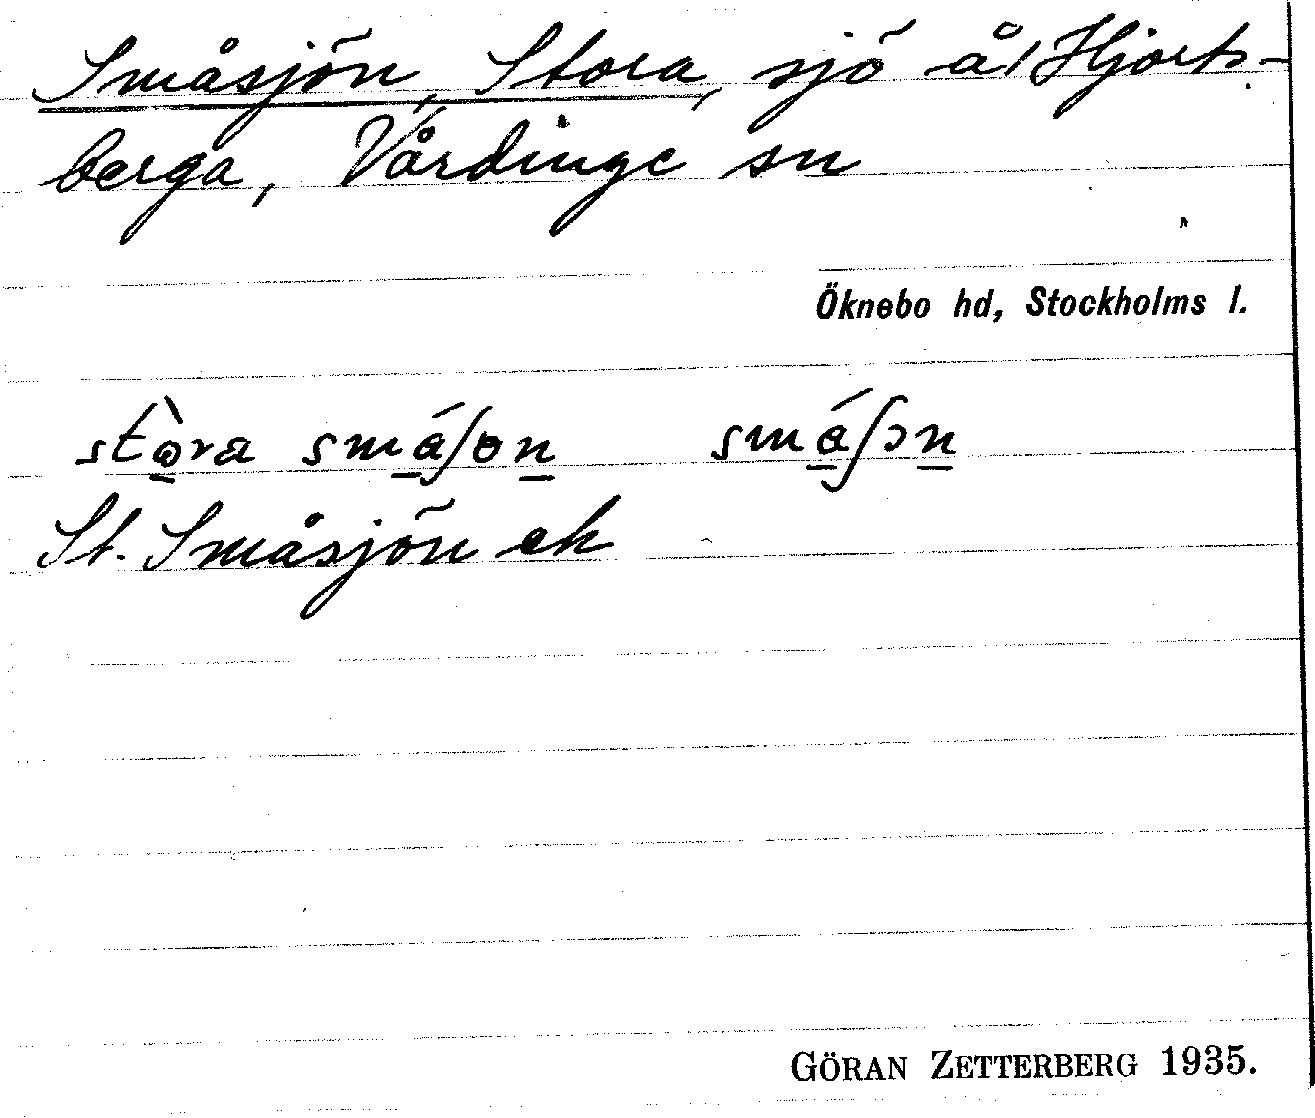 Småsjön, Stora, sjö å/Hjorts-
berga, Vårdinge sn
Öknebo hd, Stockholms l.
stò̱ra smǻ̱ʃɵṉ smǻ̱ʃɔṉ
St. Småsjön ek
GÖRAN ZETTERBERG 1935.